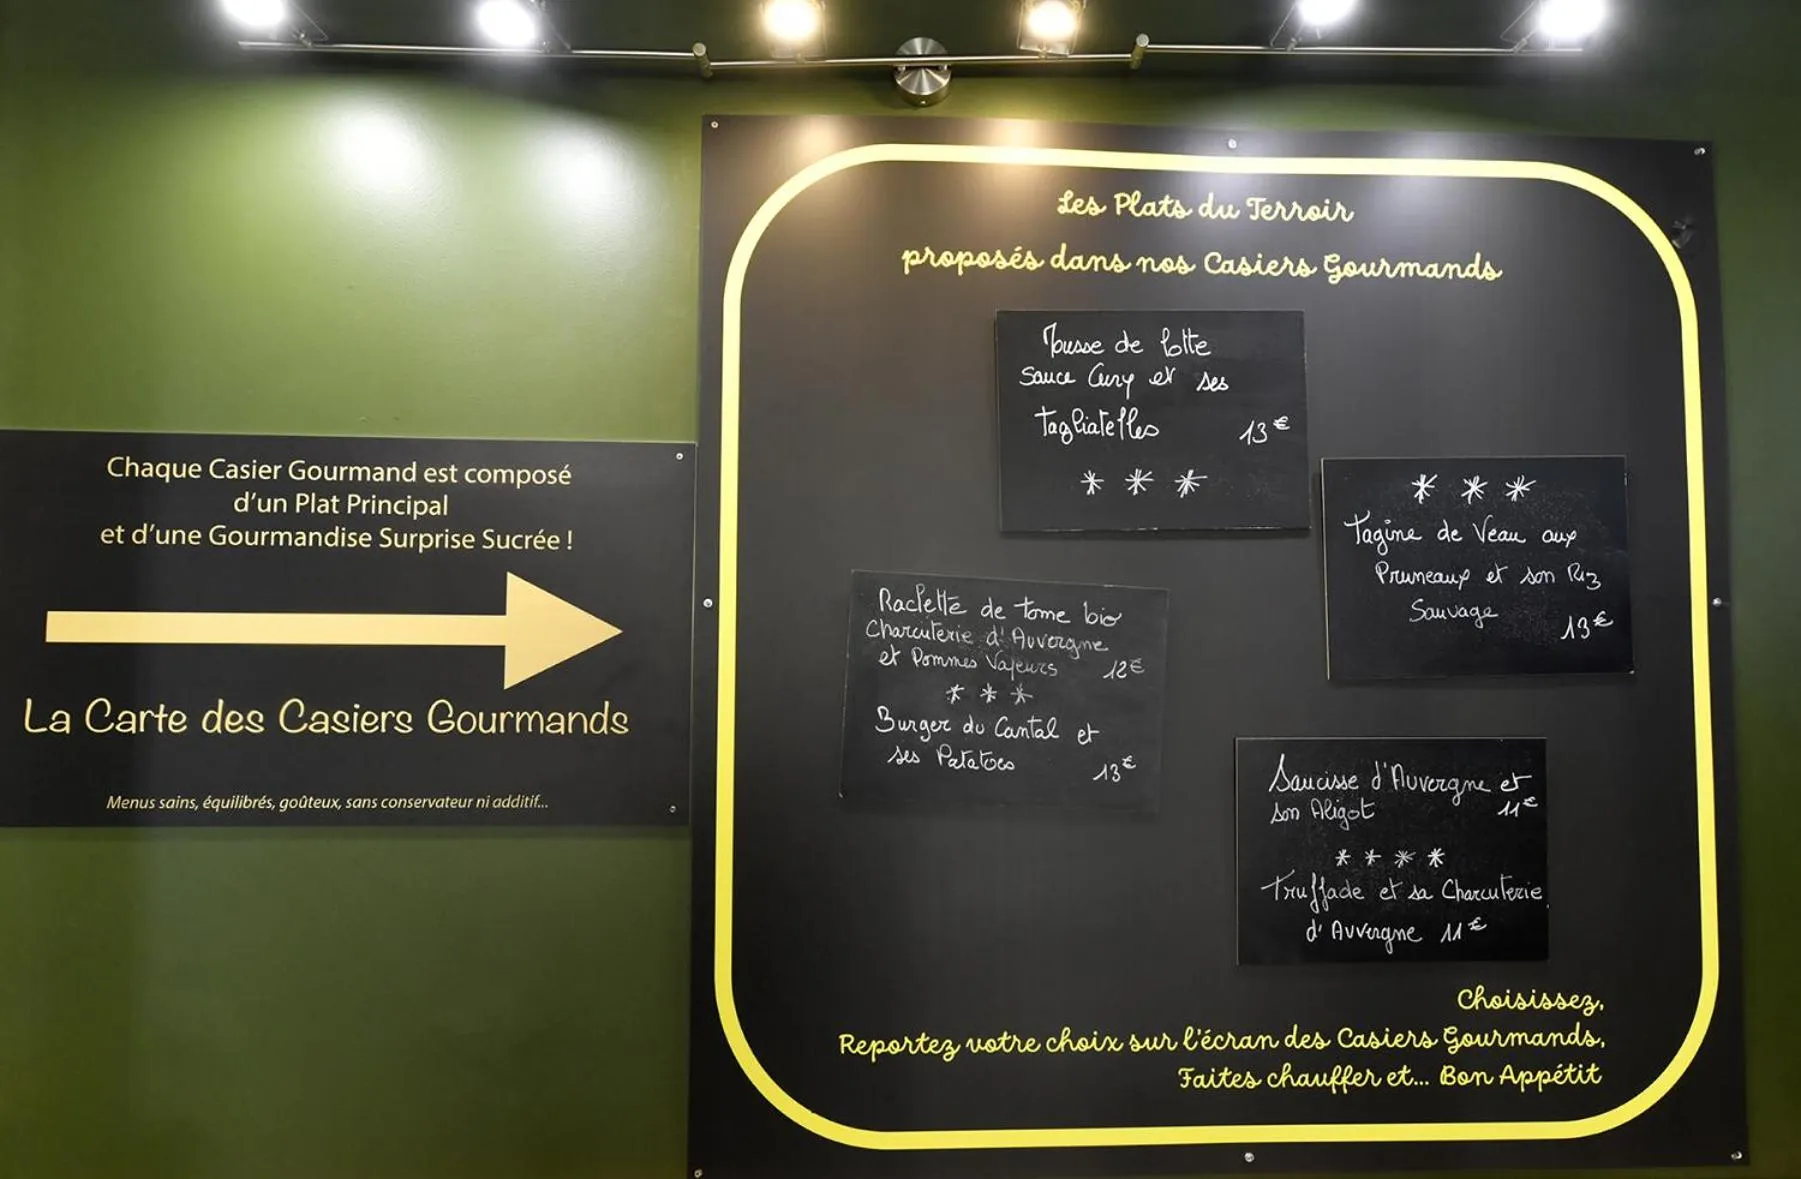 Chaque Casier Gourmand est composé
d'un Plat Principal
et d'une Gourmandise Surprise Sucrée !
La Carte des Casiers Gourmands
Menus sains, équilibrés, goûteux, sans conservateur ni additif...
Les Plats du Terroir
proposés dans nos Casiers Gourmands
Mousse de lotte
Sauce Curry et ses
Tagliatelles 13€
* * *
* * *
Tagine de Veau aux
Pruneaux et son Riz
Sauvage
13€
Raclette de tome bio
Charcuterie d'Auvergne
et Pommes Vapeurs 12€
* * *
Burger du Cantal et
ses Patatoes 13€
Saucisse d'Auvergne et
son Aligot 11€
* * * *
Truffade et sa Charcuterie
d'Auvergne 11€
Choisissez,
Reportez votre choix sur l'écran des Casiers Gourmands,
Faites chauffer et... Bon Appétit